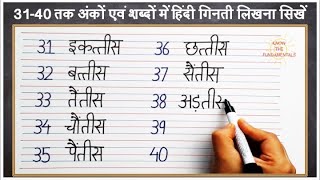 31-40 तक अंकों एवं शब्दों में हिंदी गिनती लिखना सिखें
KNOW THE FUNDAMENTALS
31 इकत्तीस
32 बत्तीस
33 तैंतीस
34 चौंतीस
35 पैंतीस
36 छत्तीस
37 सैंतीस
38 अड़तीस
39
40